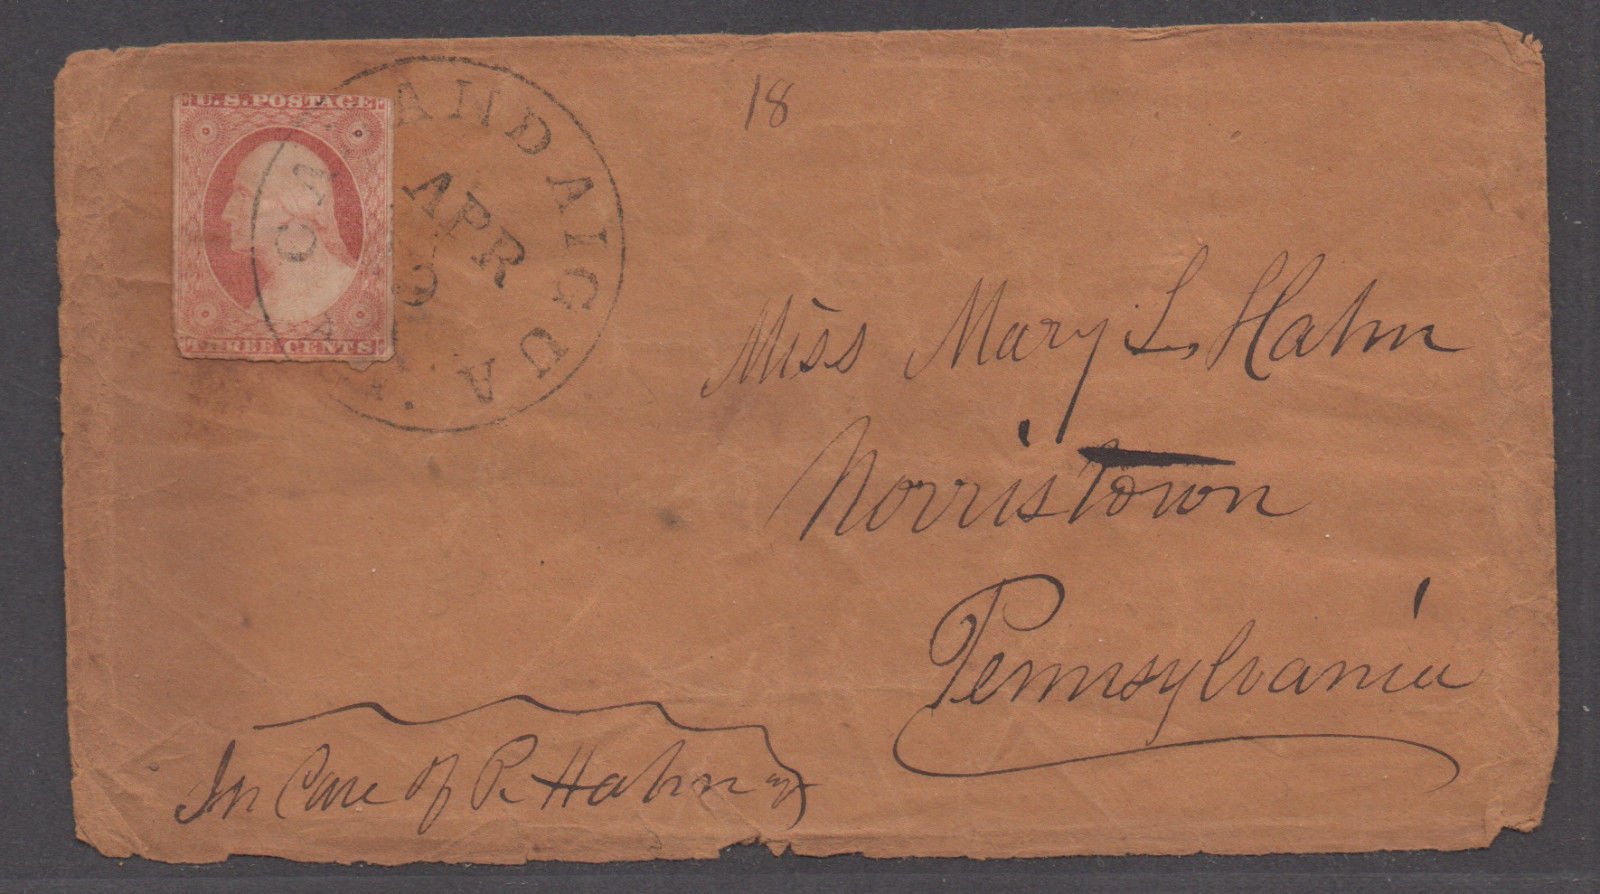 U.S. POSTAGE
THREE CENTS
CANANDAIGUA. N.Y.
APR
9
18
Miss Mary L. Hahn
Norristown
Pennsylvania
In Care of P. Hahn